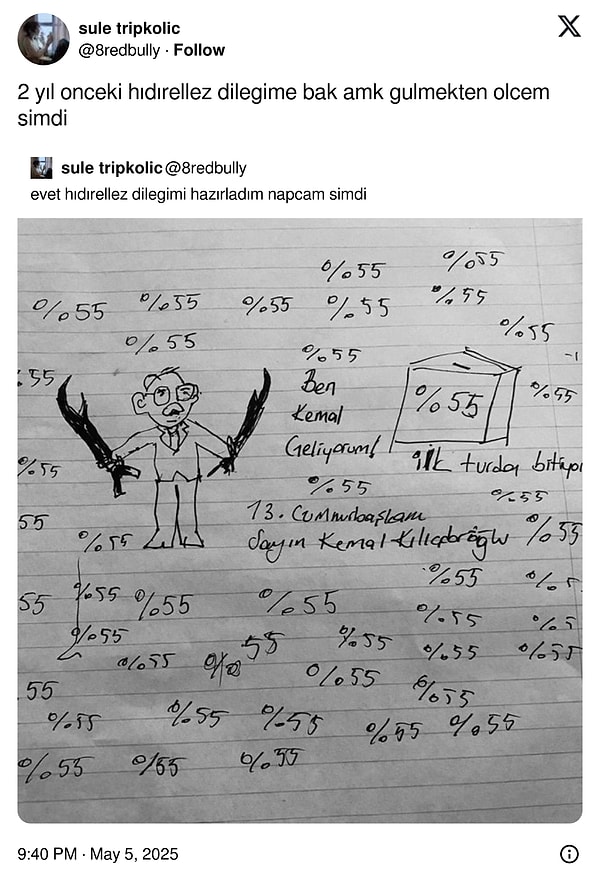 sule tripkolic
@8redbully · Follow
2 yıl onceki hıdırellez dilegime bak amk gulmekten olcem
simdi
sule tripkolic @8redbully
evet hıdırellez dilegimi hazırladım napcam simdi
%55 %55
%55 %55 %55 %55 %55
%55 %55
%55
55 Ben %55 %55
Kemal
Geliyorum!
%55 ilk turda bitiyor
%55 %55
55 13. Cumhurbaşkanı
%55 Sayın Kemal Kılıçdaroğlu %55
%55
55 %55 %55 %55
%55 %55
%55 %55 %55 %55 %55
%55 %55
55 %55
%55 %55 %55 %55 %55
%55 %55 %55
9:40 PM · May 5, 2025